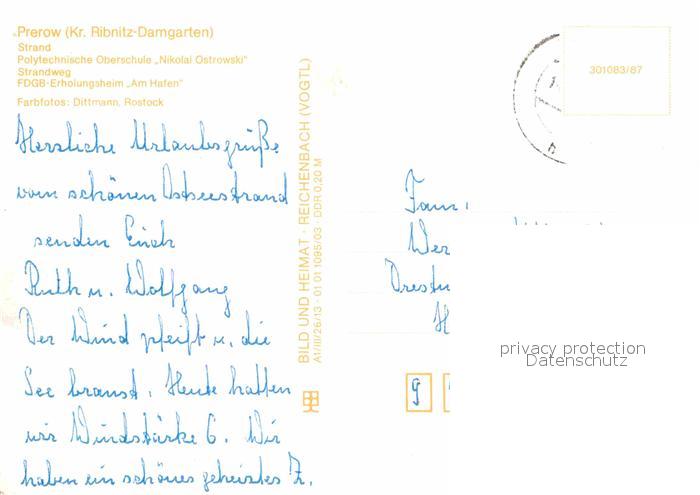 Prerow (Kr. Ribnitz-Damgarten)
Strand
Polytechnische Oberschule „Nikolai Ostrowski"
Strandweg
FDGB-Erholungsheim „Am Hafen"
Farbfotos: Dittmann, Rostock
Herzliche Urlaubsgrüße
vom schönen Ostseestrand
senden Euch
Ruth u. Wolfgang
Der Wind pfeift u. die
See braust. Heute hatten
wir Windstärke 6. Wir
haben ein schönes geheiztes Z.
BILD UND HEIMAT · REICHENBACH (VOGTL)
A1/III/26/13 · 01 01 1095/03 · DDR 0,20 M
301083/87
Fam.
Wer
Dresd
H
9
privacy protection
Datenschutz